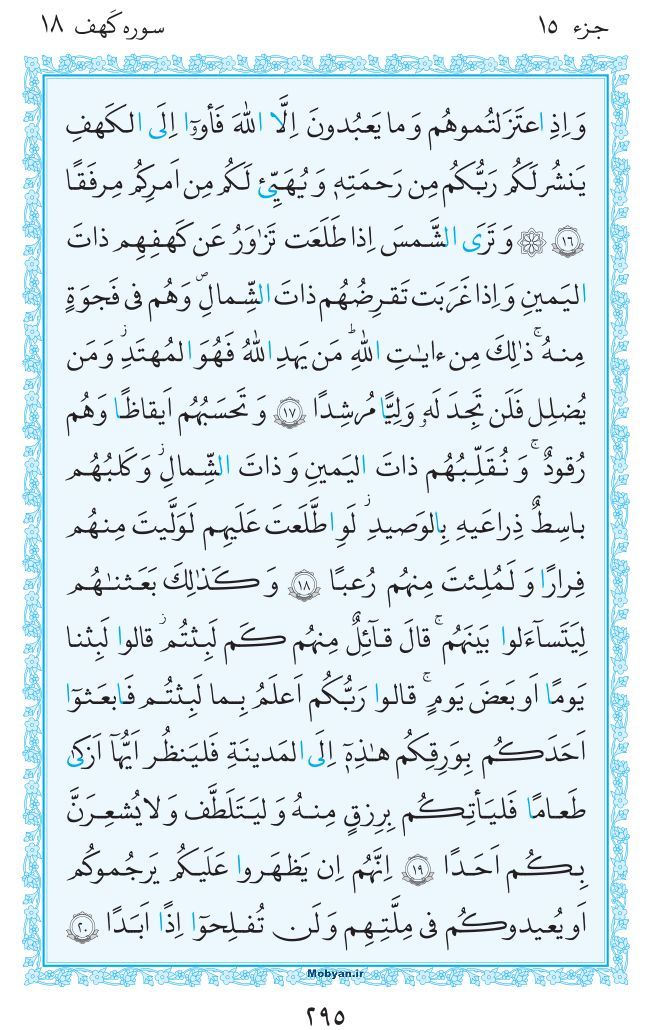 جزء ۱۵
سوره کَهف ۱۸
وَ اِذِ اعتَزَلتُموهُم وَ ما يَعبُدونَ اِلَّا اللهَ فَأووۤا اِلَى الكَهفِ
يَنشُر لَكُم رَبُّكُم مِن رَحمَتِهٖ وَ يُهَيِّئ لَكُم مِن اَمرِكُم مِرفَقًا
﴿۱۶﴾ ۞ وَ تَرَى الشَّمسَ اِذا طَلَعَت تَزٰوَرُ عَن كَهفِهِم ذاتَ
اليَمينِ وَ اِذا غَرَبَت تَقرِضُهُم ذاتَ الشِّمالِ ۖ وَ هُم فى فَجوَةٍ
مِنهُ ۚ ذٰلِكَ مِن ءايٰتِ اللهِ ۗ مَن يَهدِ اللهُ فَهُوَ المُهتَدِ ۖ وَ مَن
يُضلِل فَلَن تَجِدَ لَهٗ وَلِيًّا مُرشِدًا ﴿۱۷﴾ وَ تَحسَبُهُم اَيقاظًا وَ هُم
رُقودٌ ۚ وَ نُقَلِّبُهُم ذاتَ اليَمينِ وَ ذاتَ الشِّمالِ ۖ وَ كَلبُهُم
باسِطٌ ذِراعَيهِ بِالوَصيدِ ۚ لَوِ اطَّلَعتَ عَلَيهِم لَوَلَّيتَ مِنهُم
فِرارًا وَ لَمُلِئتَ مِنهُم رُعبًا ﴿۱۸﴾ وَ كَذٰلِكَ بَعَثنٰهُم
لِيَتَسآءَلوا بَينَهُم ۚ قالَ قآئِلٌ مِنهُم كَم لَبِثتُم ۖ قالوا لَبِثنا
يَومًا اَو بَعضَ يَومٍ ۚ قالوا رَبُّكُم اَعلَمُ بِما لَبِثتُم فَابعَثوۤا
اَحَدَكُم بِوَرِقِكُم هٰذِهٖۤ اِلَى المَدينَةِ فَليَنظُر اَيُّهاۤ اَزكىٰ
طَعامًا فَليَأتِكُم بِرِزقٍ مِنهُ وَ ليَتَلَطَّف وَ لا يُشعِرَنَّ
بِكُم اَحَدًا ﴿۱۹﴾ اِنَّهُم اِن يَظهَروا عَلَيكُم يَرجُموكُم
اَو يُعيدوكُم فى مِلَّتِهِم وَ لَن تُفلِحوۤا اِذًا اَبَدًا ﴿۲۰﴾
Mobyan.ir
۲۹۵